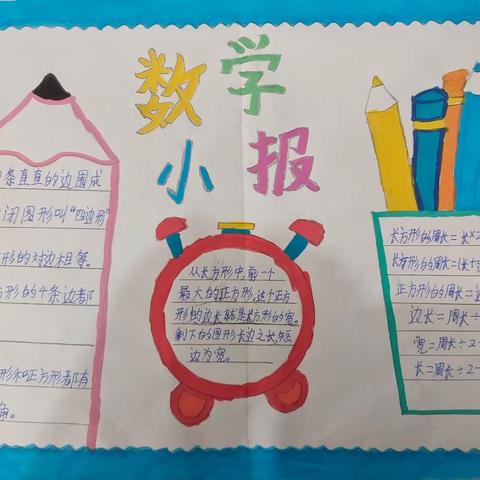 数学
小报
条直直的边围成
闭图形叫“四边形”
形的对边相等。
形的4条边都
形和正方形都有
角。
从长方形中,剪一个
最大的正方形,这个正方
形的边长就是长方形的宽。
剩下的图形长边之长,短
边为宽。
长方形的周长=长×2
长方形的周长=(长+
正方形的周长=
边长=周长÷
宽=周长÷2-
长=周长÷2-